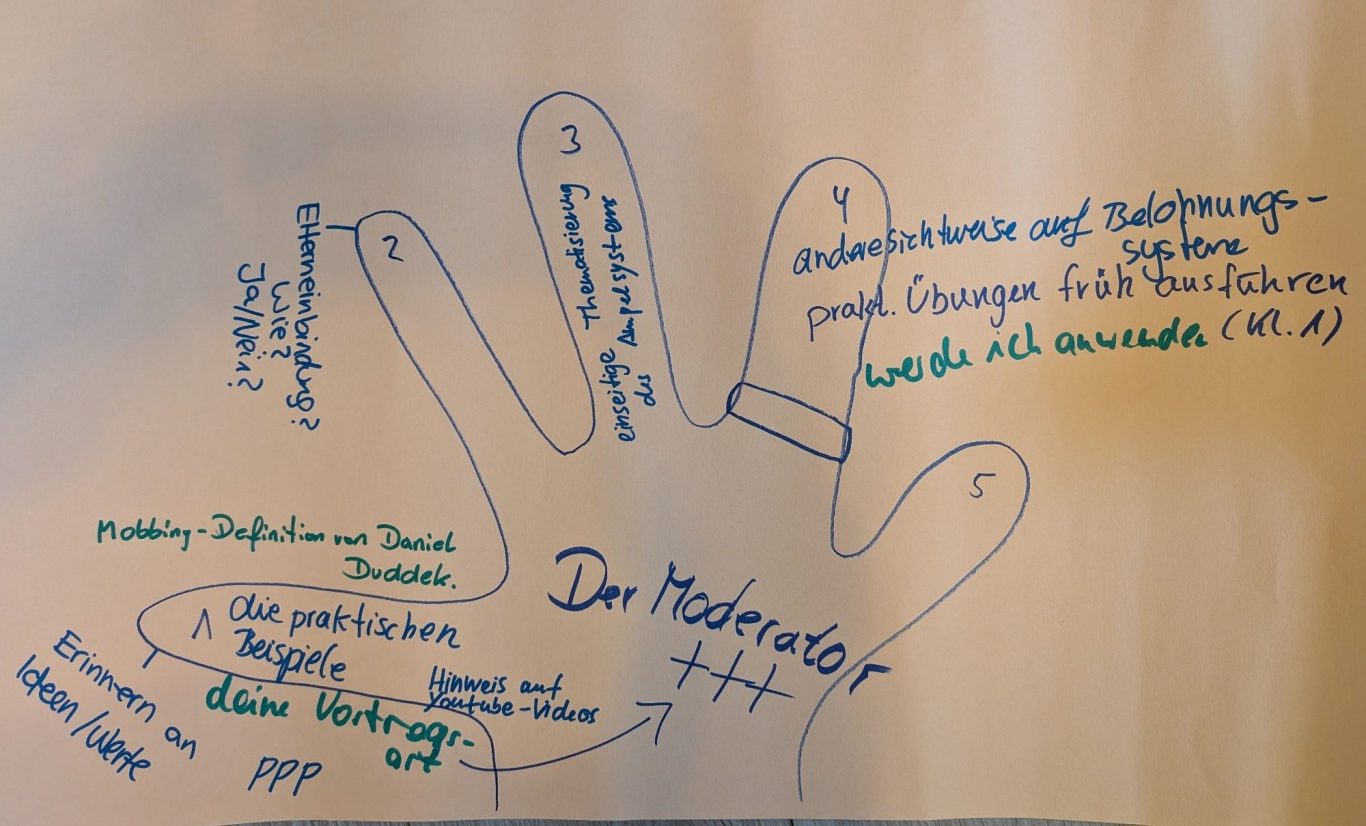 3
2
4
Elterneinbindung?
Wie?
Ja/Nein?
einseitige Thematisierung
des Ampelsystems
andere Sichtweise auf Belohnungs-
systeme
prakt. Übungen früh ausführen
werde ich anwenden (Kl. 1)
5
Mobbing-Definition von Daniel
Duddek.
1 die praktischen
Beispiele
Der Moderator
+++
Erinnern an
Ideen/Werte
deine Vortrags-
art
Hinweis auf
Youtube-Videos
PPP